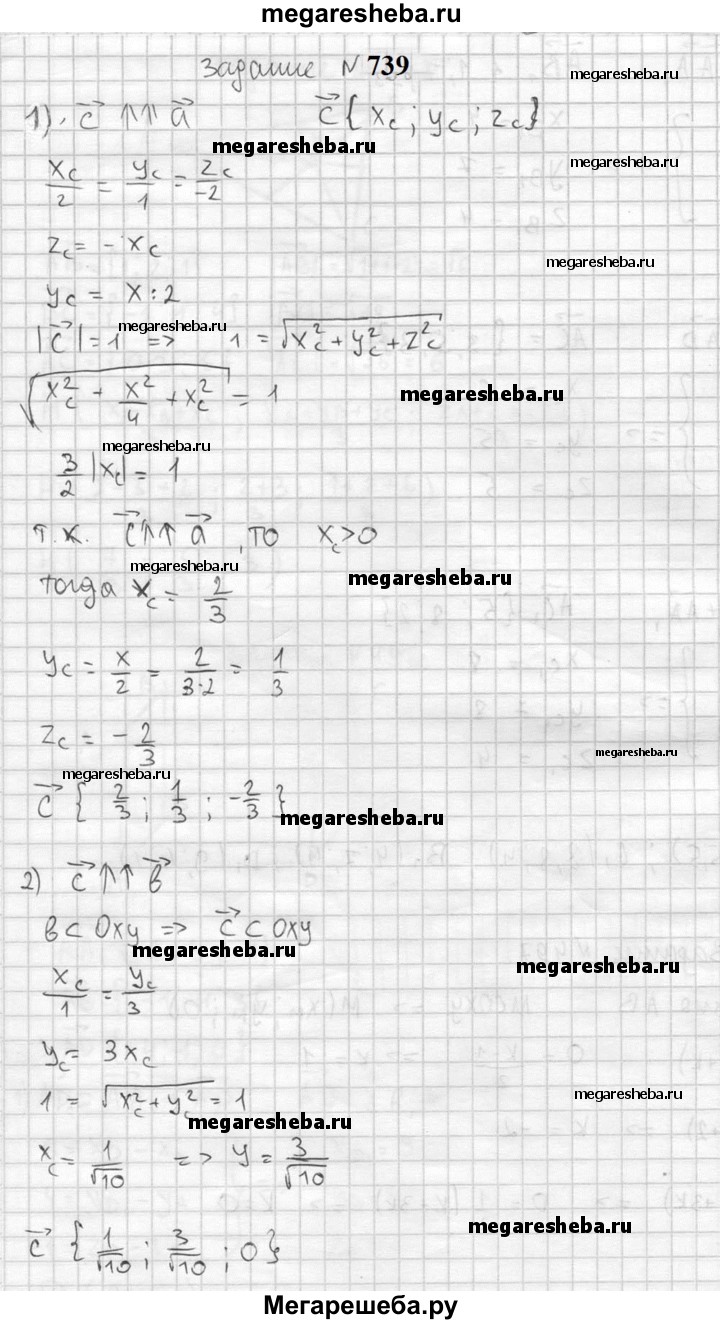 megaresheba.ru
Задание N 739
megaresheba.ru
1). c⃗ ↑↑ a⃗ c⃗ {x_c ; y_c ; z_c}
megaresheba.ru
megaresheba.ru
x_c/2 = y_c/1 = z_c/-2
z_c = - x_c
megaresheba.ru
y_c = x : 2
megaresheba.ru
|c⃗| = 1 => 1 = √(x_c² + y_c² + z_c²)
√(x_c² + x²/4 + x_c²) = 1
megaresheba.ru
megaresheba.ru
3/2 |x_c| = 1
т.к. c⃗ ↑↑ a⃗ , то x_c > 0
megaresheba.ru
megaresheba.ru
тогда x_c = 2/3
y_c = x/2 = 2/(3·2) = 1/3
z_c = - 2/3
megaresheba.ru
megaresheba.ru
c⃗ { 2/3 ; 1/3 ; -2/3 }
megaresheba.ru
2) c⃗ ↑↑ b⃗
b ⊂ Oxy => c⃗ ⊂ Oxy
megaresheba.ru
megaresheba.ru
x_c/1 = y_c/3
y_c = 3x_c
1 = √(x_c² + y_c²) = 1
megaresheba.ru
megaresheba.ru
x_c = 1/√10 => y = 3/√10
megaresheba.ru
c⃗ { 1/√10 ; 3/√10 ; 0 }
Мегарешеба.ру